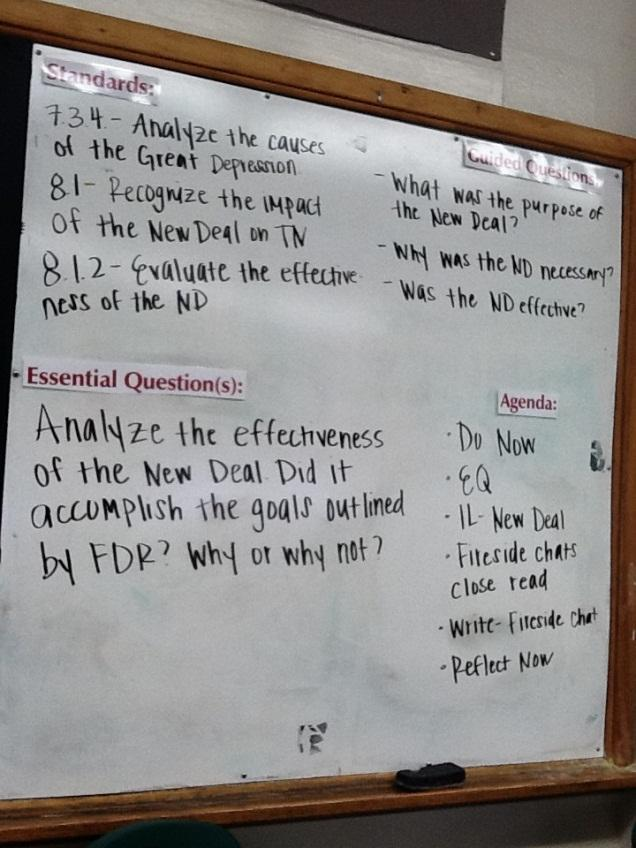 Standards:
7.3.4 - Analyze the causes
of the Great Depression
8.1 - Recognize the impact
of the New Deal on TN
8.1.2 - Evaluate the effective-
ness of the ND
Guided Questions
- What was the purpose of
the New Deal?
- Why was the ND necessary?
- Was the ND effective?
Essential Question(s):
Analyze the effectiveness
of the New Deal. Did it
accomplish the goals outlined
by FDR? Why or why not?
Agenda:
· Do Now
· EQ
· IL- New Deal
· Fireside chats
close read
· Write- Fireside Chat
· Reflect Now